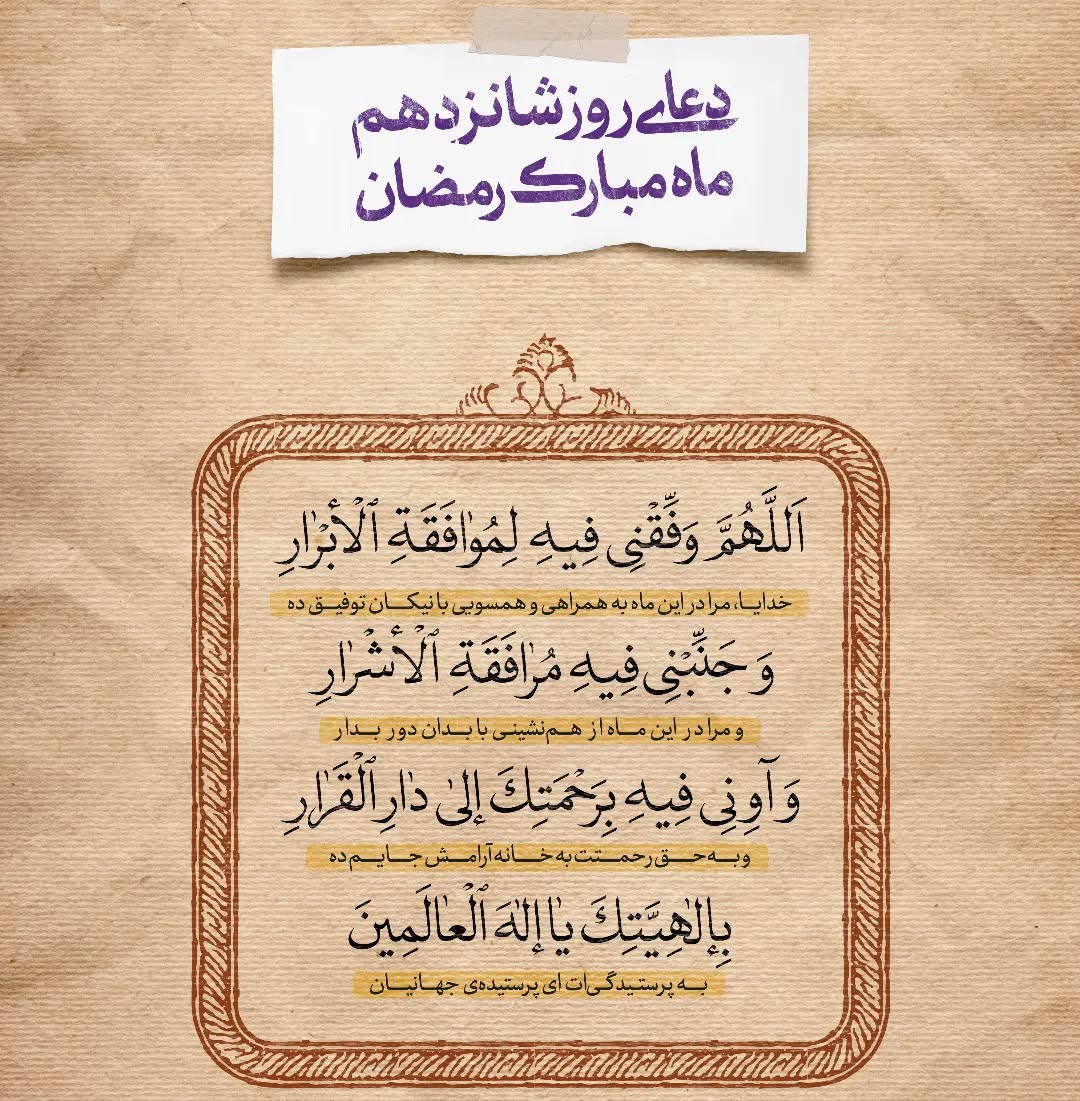 دعای روز شانزدهم
ماه مبارک رمضان
اَللَّهُمَّ وَفِّقْنِی فِیهِ لِمُوٰافَقَةِ ٱلْأَبْرٰارِ
خدایا، مرا در این ماه به همراهی و همسویی با نیکان توفیق ده
وَ جَنِّبْنِی فِیهِ مُرٰافَقَةِ ٱلْأَشْرٰارِ
و مرا در این ماه از هم‌نشینی با بدان دور بدار
وَ آوِنِی فِیهِ بِرَحْمَتِكَ إلیٰ دٰارِ ٱلْقَرٰارِ
و به حق رحمتت به خانه آرامش جایم ده
بِإلٰهِیَّتِكَ یٰا إلٰهَ ٱلْعٰالَمِینَ
به پرستیدگی‌ات ای پرستیده‌ی جهانیان